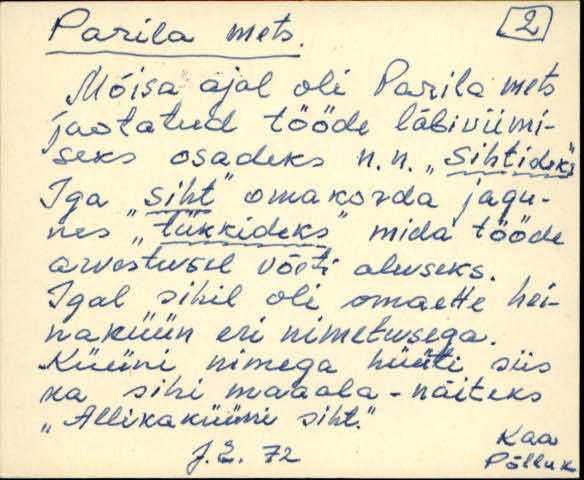 Parila mets.
2
Mõisa ajal oli Parila mets
jaotatud tööde läbiviimi-
seks osadeks n.n. „sihtideks"
Iga „siht" omakorda jagu-
nes „tükkideks" mida tööde
arvestusel võeti aluseks.
Igal sihil oli omaette hei-
naküün eri nimetusega.
Küüni nimega hüüti siis
ka sihi maaala - näiteks
„Allikaküüni siht."
J.E. 72
Kaa
Põlluk